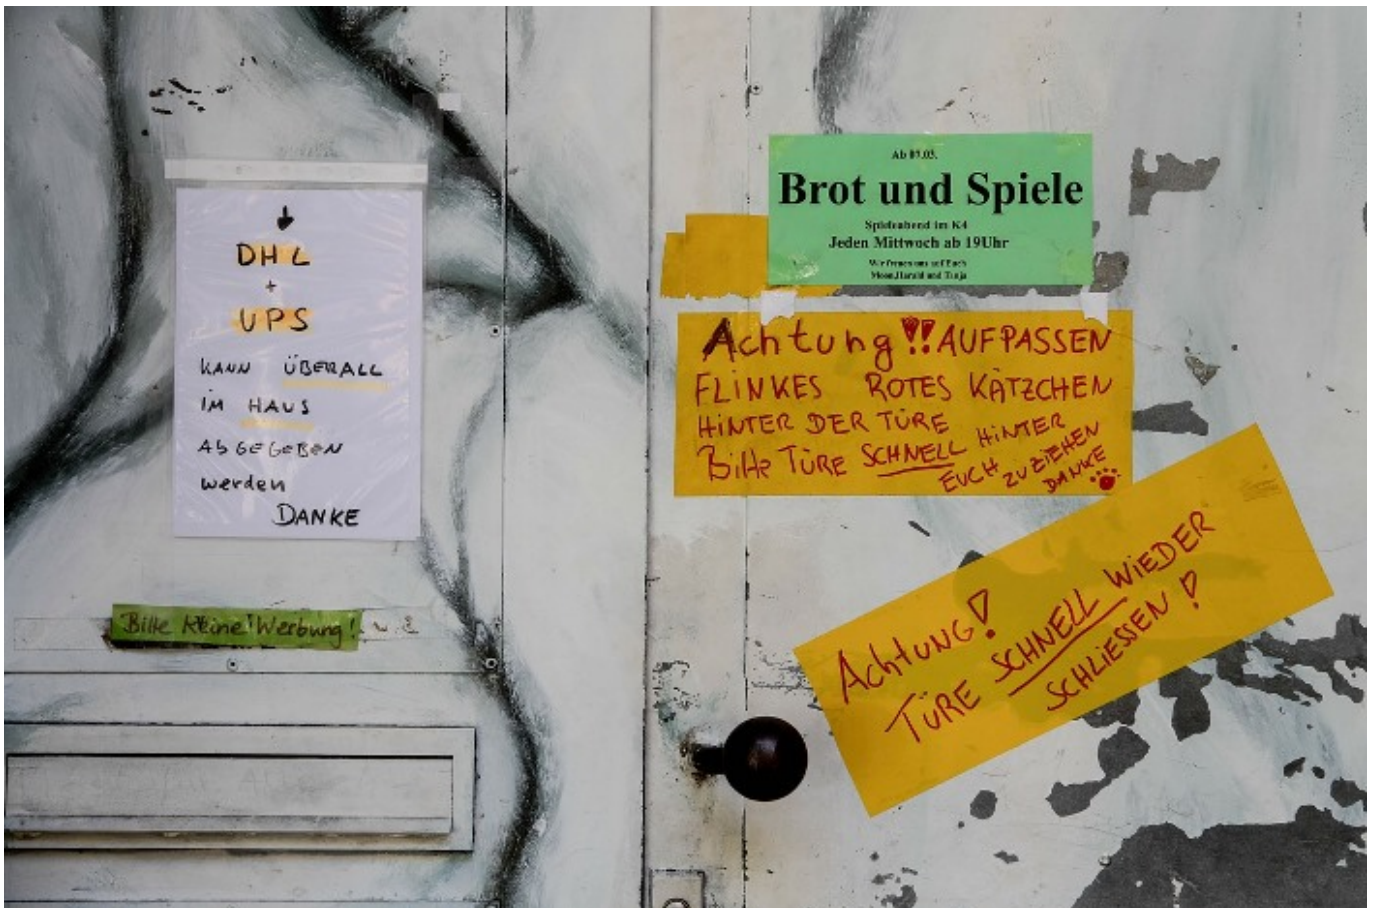 DHL
+
UPS
KANN ÜBERALL
IM HAUS
ABGEGEBEN
werden
DANKE
Bitte keine Werbung!
Ab 07.03.
Brot und Spiele
Spieleabend im K4
Jeden Mittwoch ab 19Uhr
Wir freuen uns auf Euch
Moon,Harald und Tanja
Achtung!! AUFPASSEN
FLINKES ROTES KÄTZCHEN
HINTER DER TÜRE
Bitte TÜRE SCHNELL HINTER
EUCH ZU ZIEHEN
DANKE
Achtung!
TÜRE SCHNELL WIEDER
SCHLIESSEN!